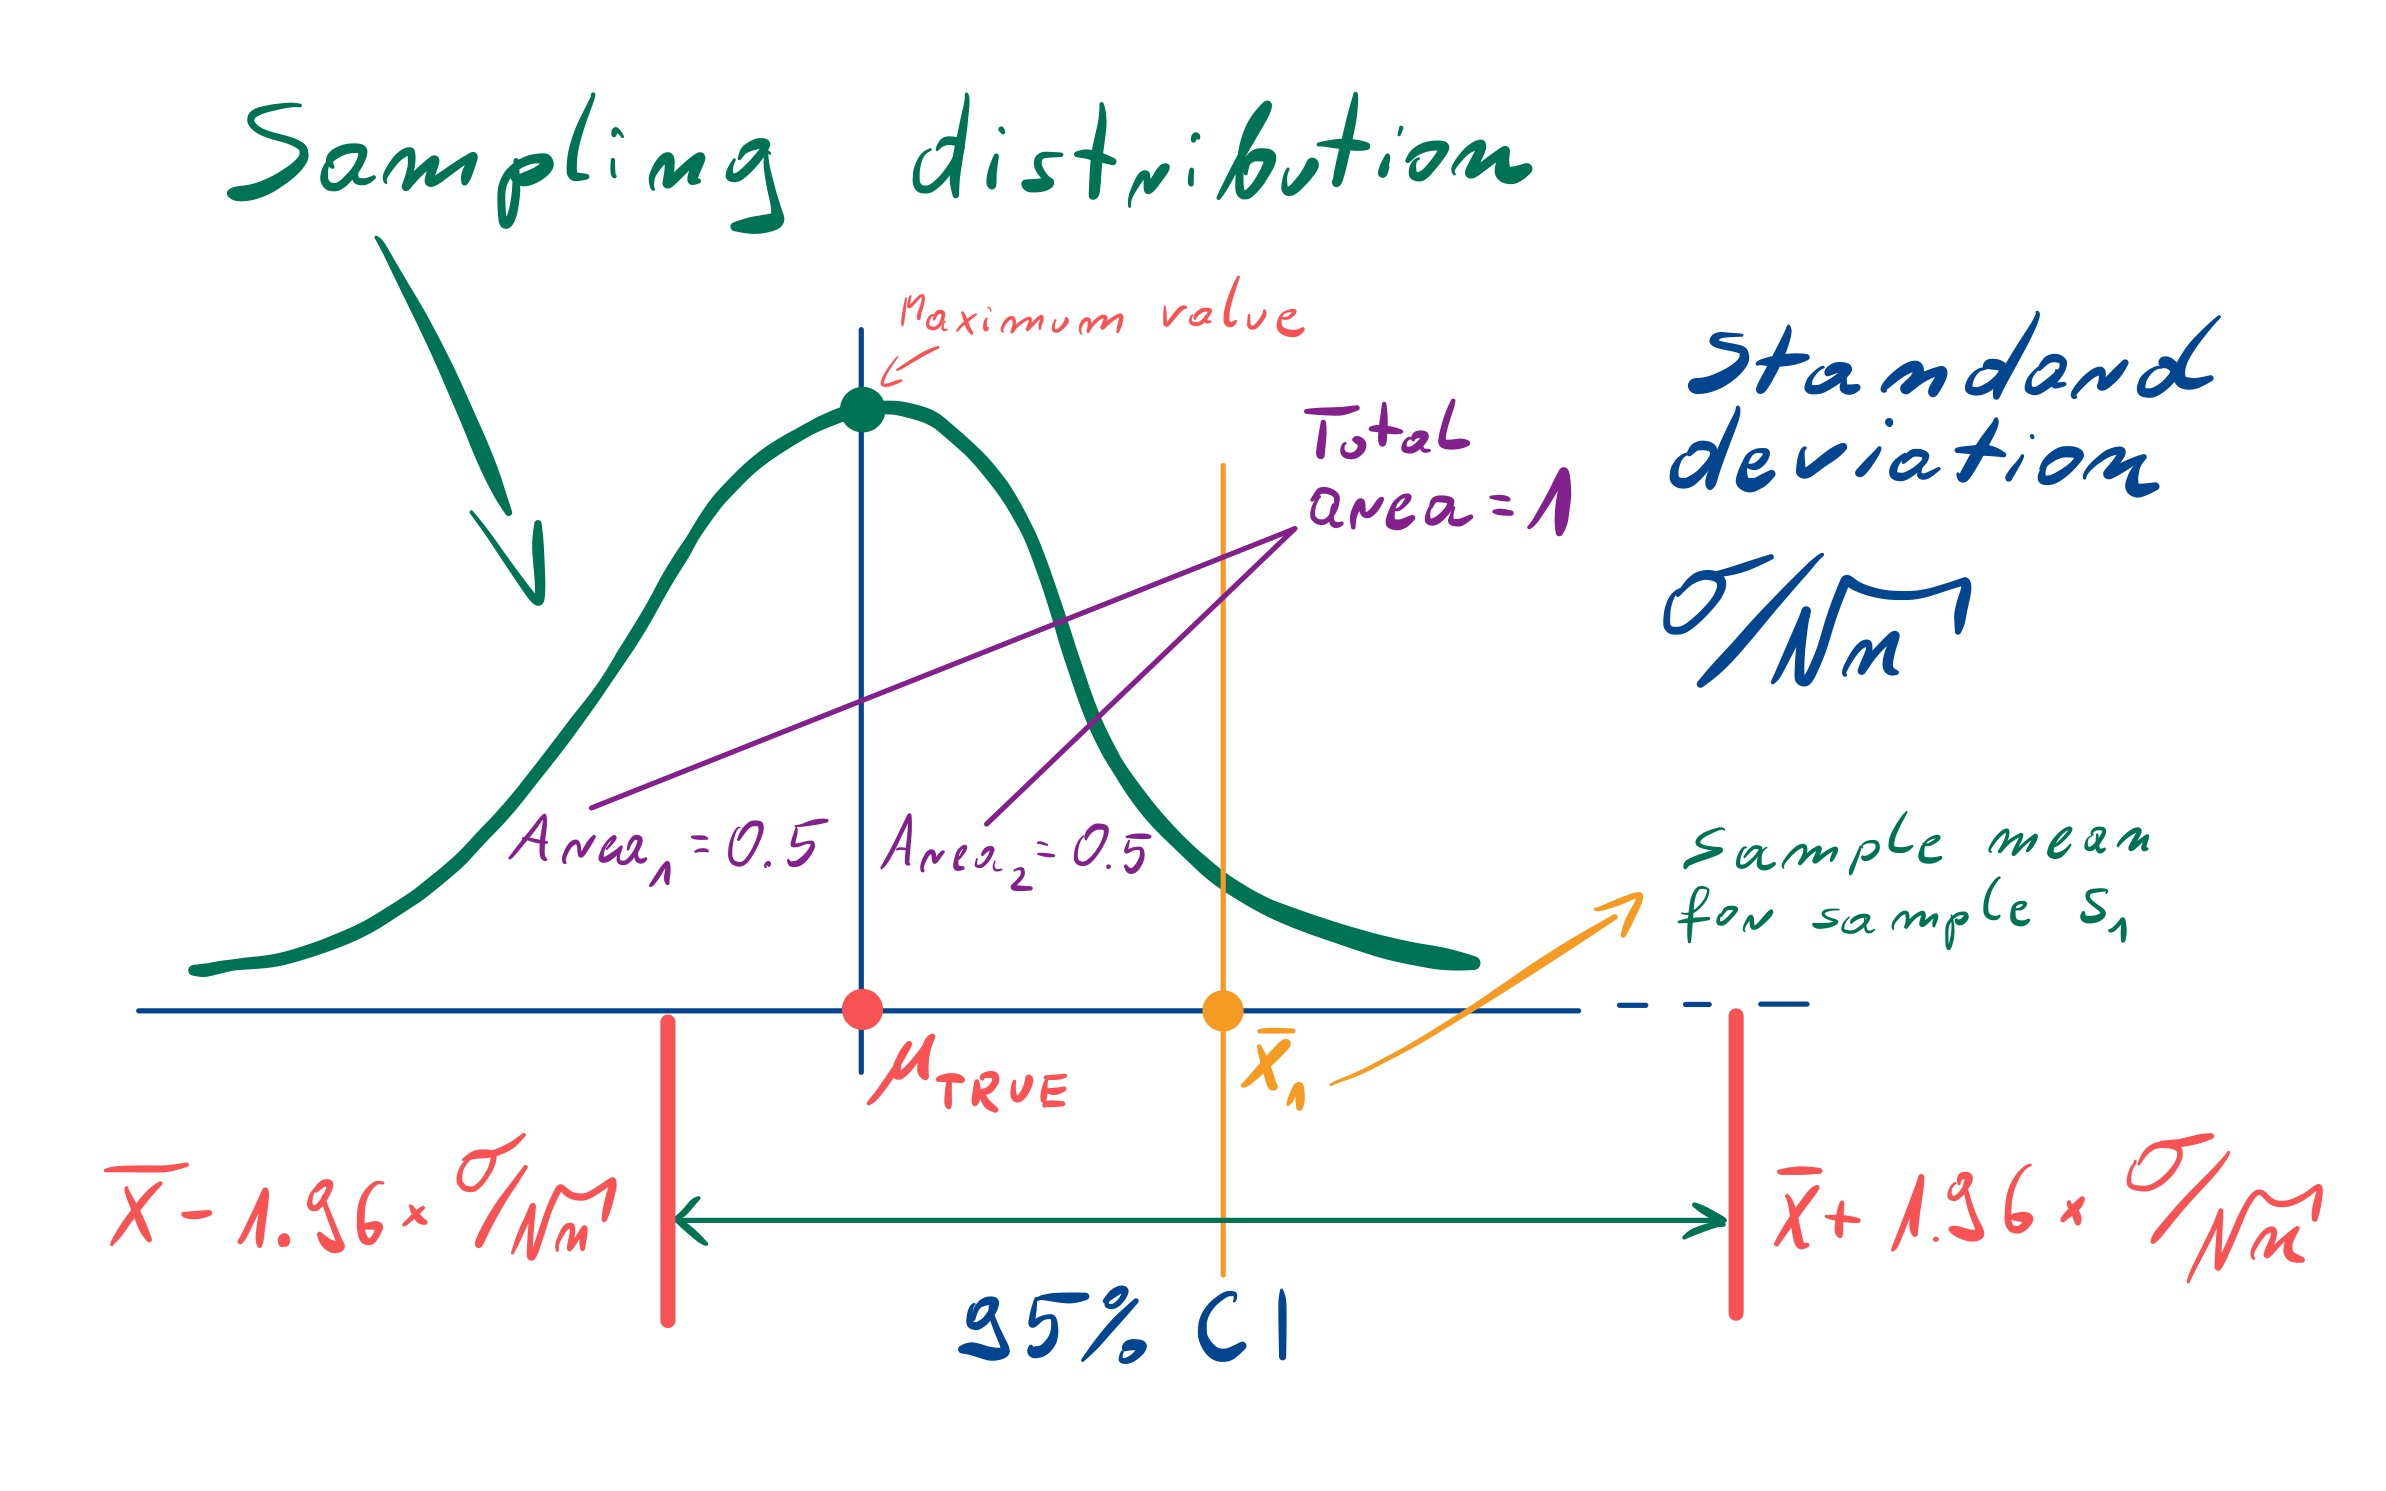 Sampling distribution
Maximum value
Standard
deviation
σ/√n
Total
area = 1
Area₁ = 0.5
Area₂ = 0.5
sample mean
for sample S₁
μTRUE
x̄₁
x̄ - 1.96 × σ/√n
x̄ + 1.96 × σ/√n
95% CI